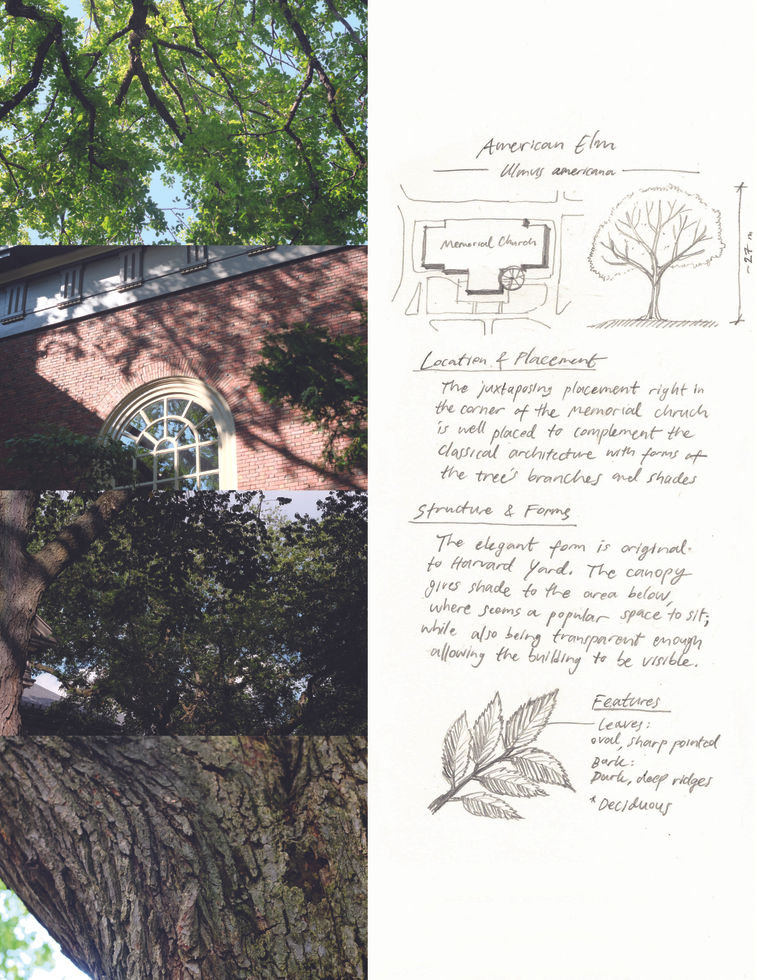 American Elm
Ulmus americana
Memorial Church
~27 m
Location & Placement
The juxtaposing placement right in
the corner of the Memorial chruch
is well placed to complement the
classical architecture with forms of
the tree's branches and shades
Structure & Forms
The elegant form is original
to Harvard Yard. The canopy
gives shade to the area below,
where seems a popular space to sit,
while also being transparent enough
allowing the building to be visible.
Features
Leaves:
oval, sharp pointed
Bark:
Dark, deep ridges
*Deciduous